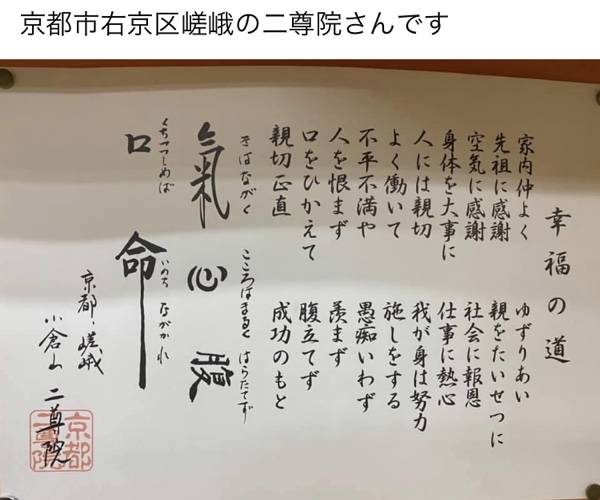 京都市右京区嵯峨の二尊院さんです
幸福の道
家内仲よく ゆずりあい
先祖に感謝 親をたいせつに
空気に感謝 社会に報恩
身体を大事に 仕事に熱心
人には親切 我が身は努力
よく働いて 施しをする
不平不満や 愚痴いわず
人を恨まず 羨まず
口をひかえて 腹立てず
親切正直 成功のもと
きはながく こころはまるく はらたてず
氣 心 腹
くちつつしめば いのち ながかれ
口 命
京都、嵯峨
小倉山 二尊院
京都
二尊院